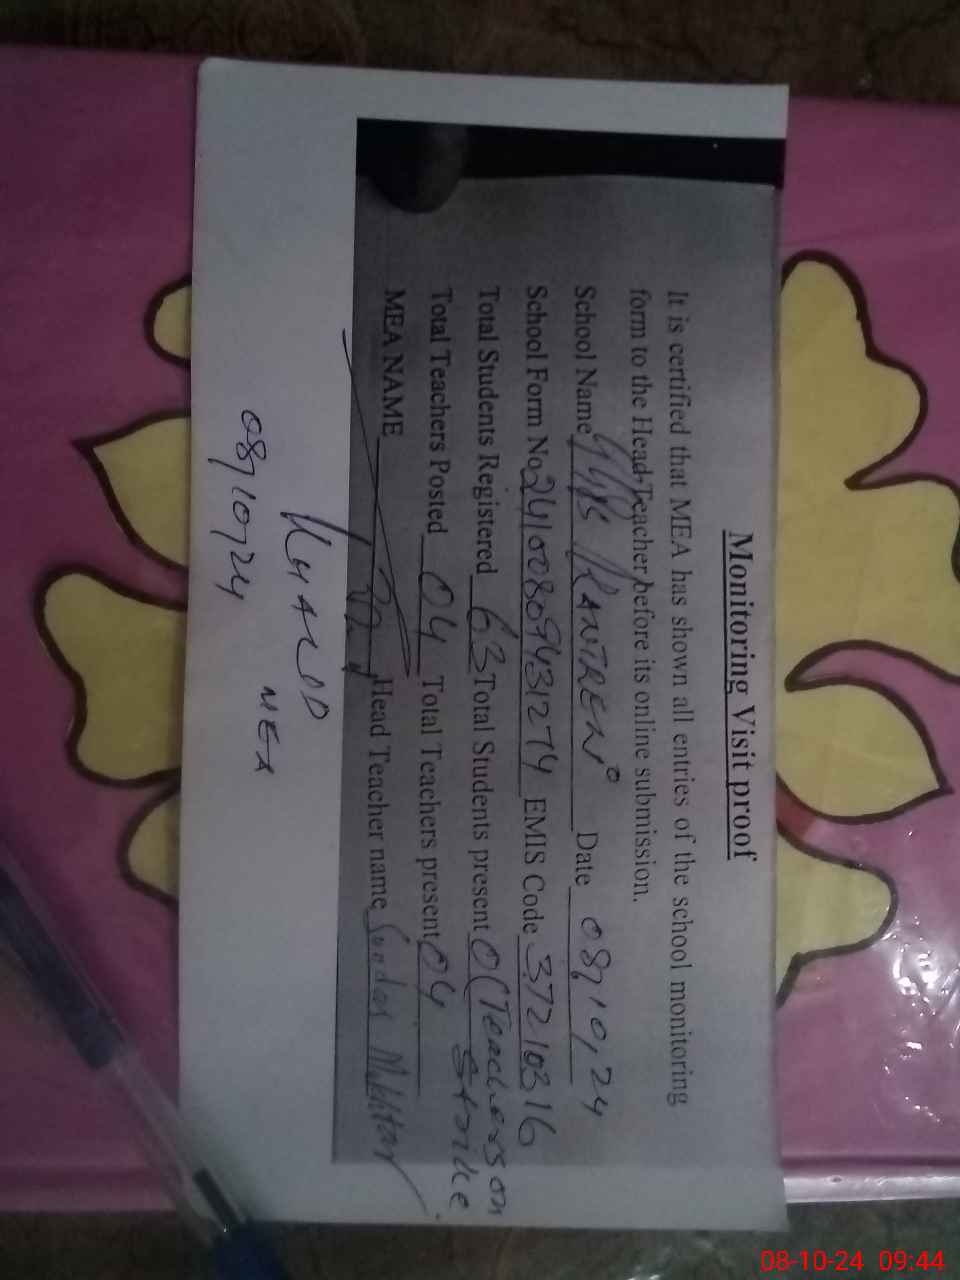 Monitoring Visit proof
It is certified that MEA has shown all entries of the school monitoring
form to the Head-Teacher before its online submission.
School Name KANTREN Date 08,10,24
School Form No EMIS Code 37210316
Total Students Registered 63 Total Students present 0 (Teachers on
Strike
Total Teachers Posted 04 Total Teachers present 04
MEA NAME Head Teacher name
MEA
08,10,24
08-10-24 09:44